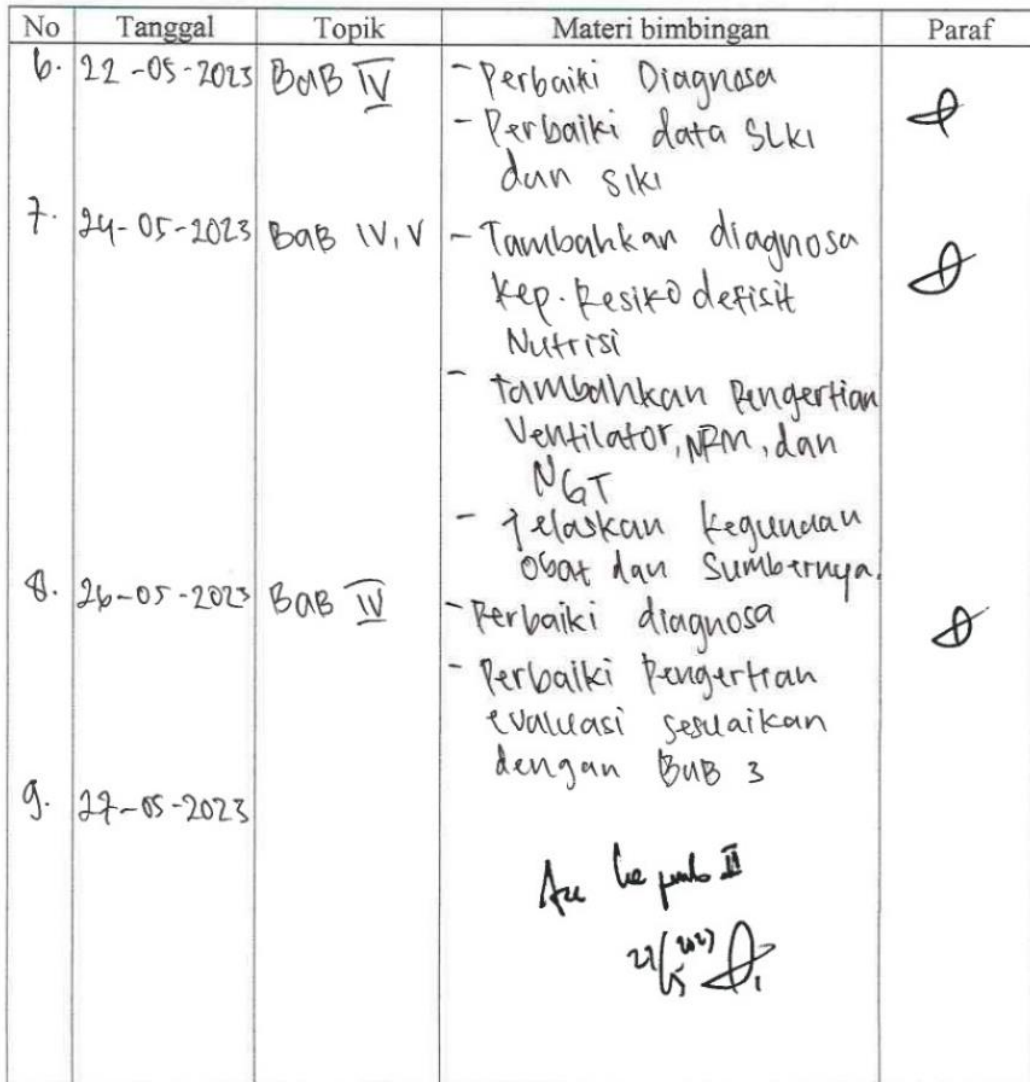 No Tanggal Topik Materi bimbingan Paraf
6. 22-05-2023 BAB IV - Perbaiki Diagnosa
- Perbaiki data SLKI
dan SIKI
7. 24-05-2023 BAB IV, V - Tambahkan diagnosa
kep. Resiko defisit
Nutrisi
- tambahkan Pengertian
Ventilator, NRM, dan
NGT
- Jelaskan kegunaan
Obat dan Sumbernya.
8. 26-05-2023 BAB IV - Perbaiki diagnosa
- Perbaiki Pengertian
evaluasi sesuaikan
dengan BAB 3
9. 27-05-2023
Acc ke pemb II